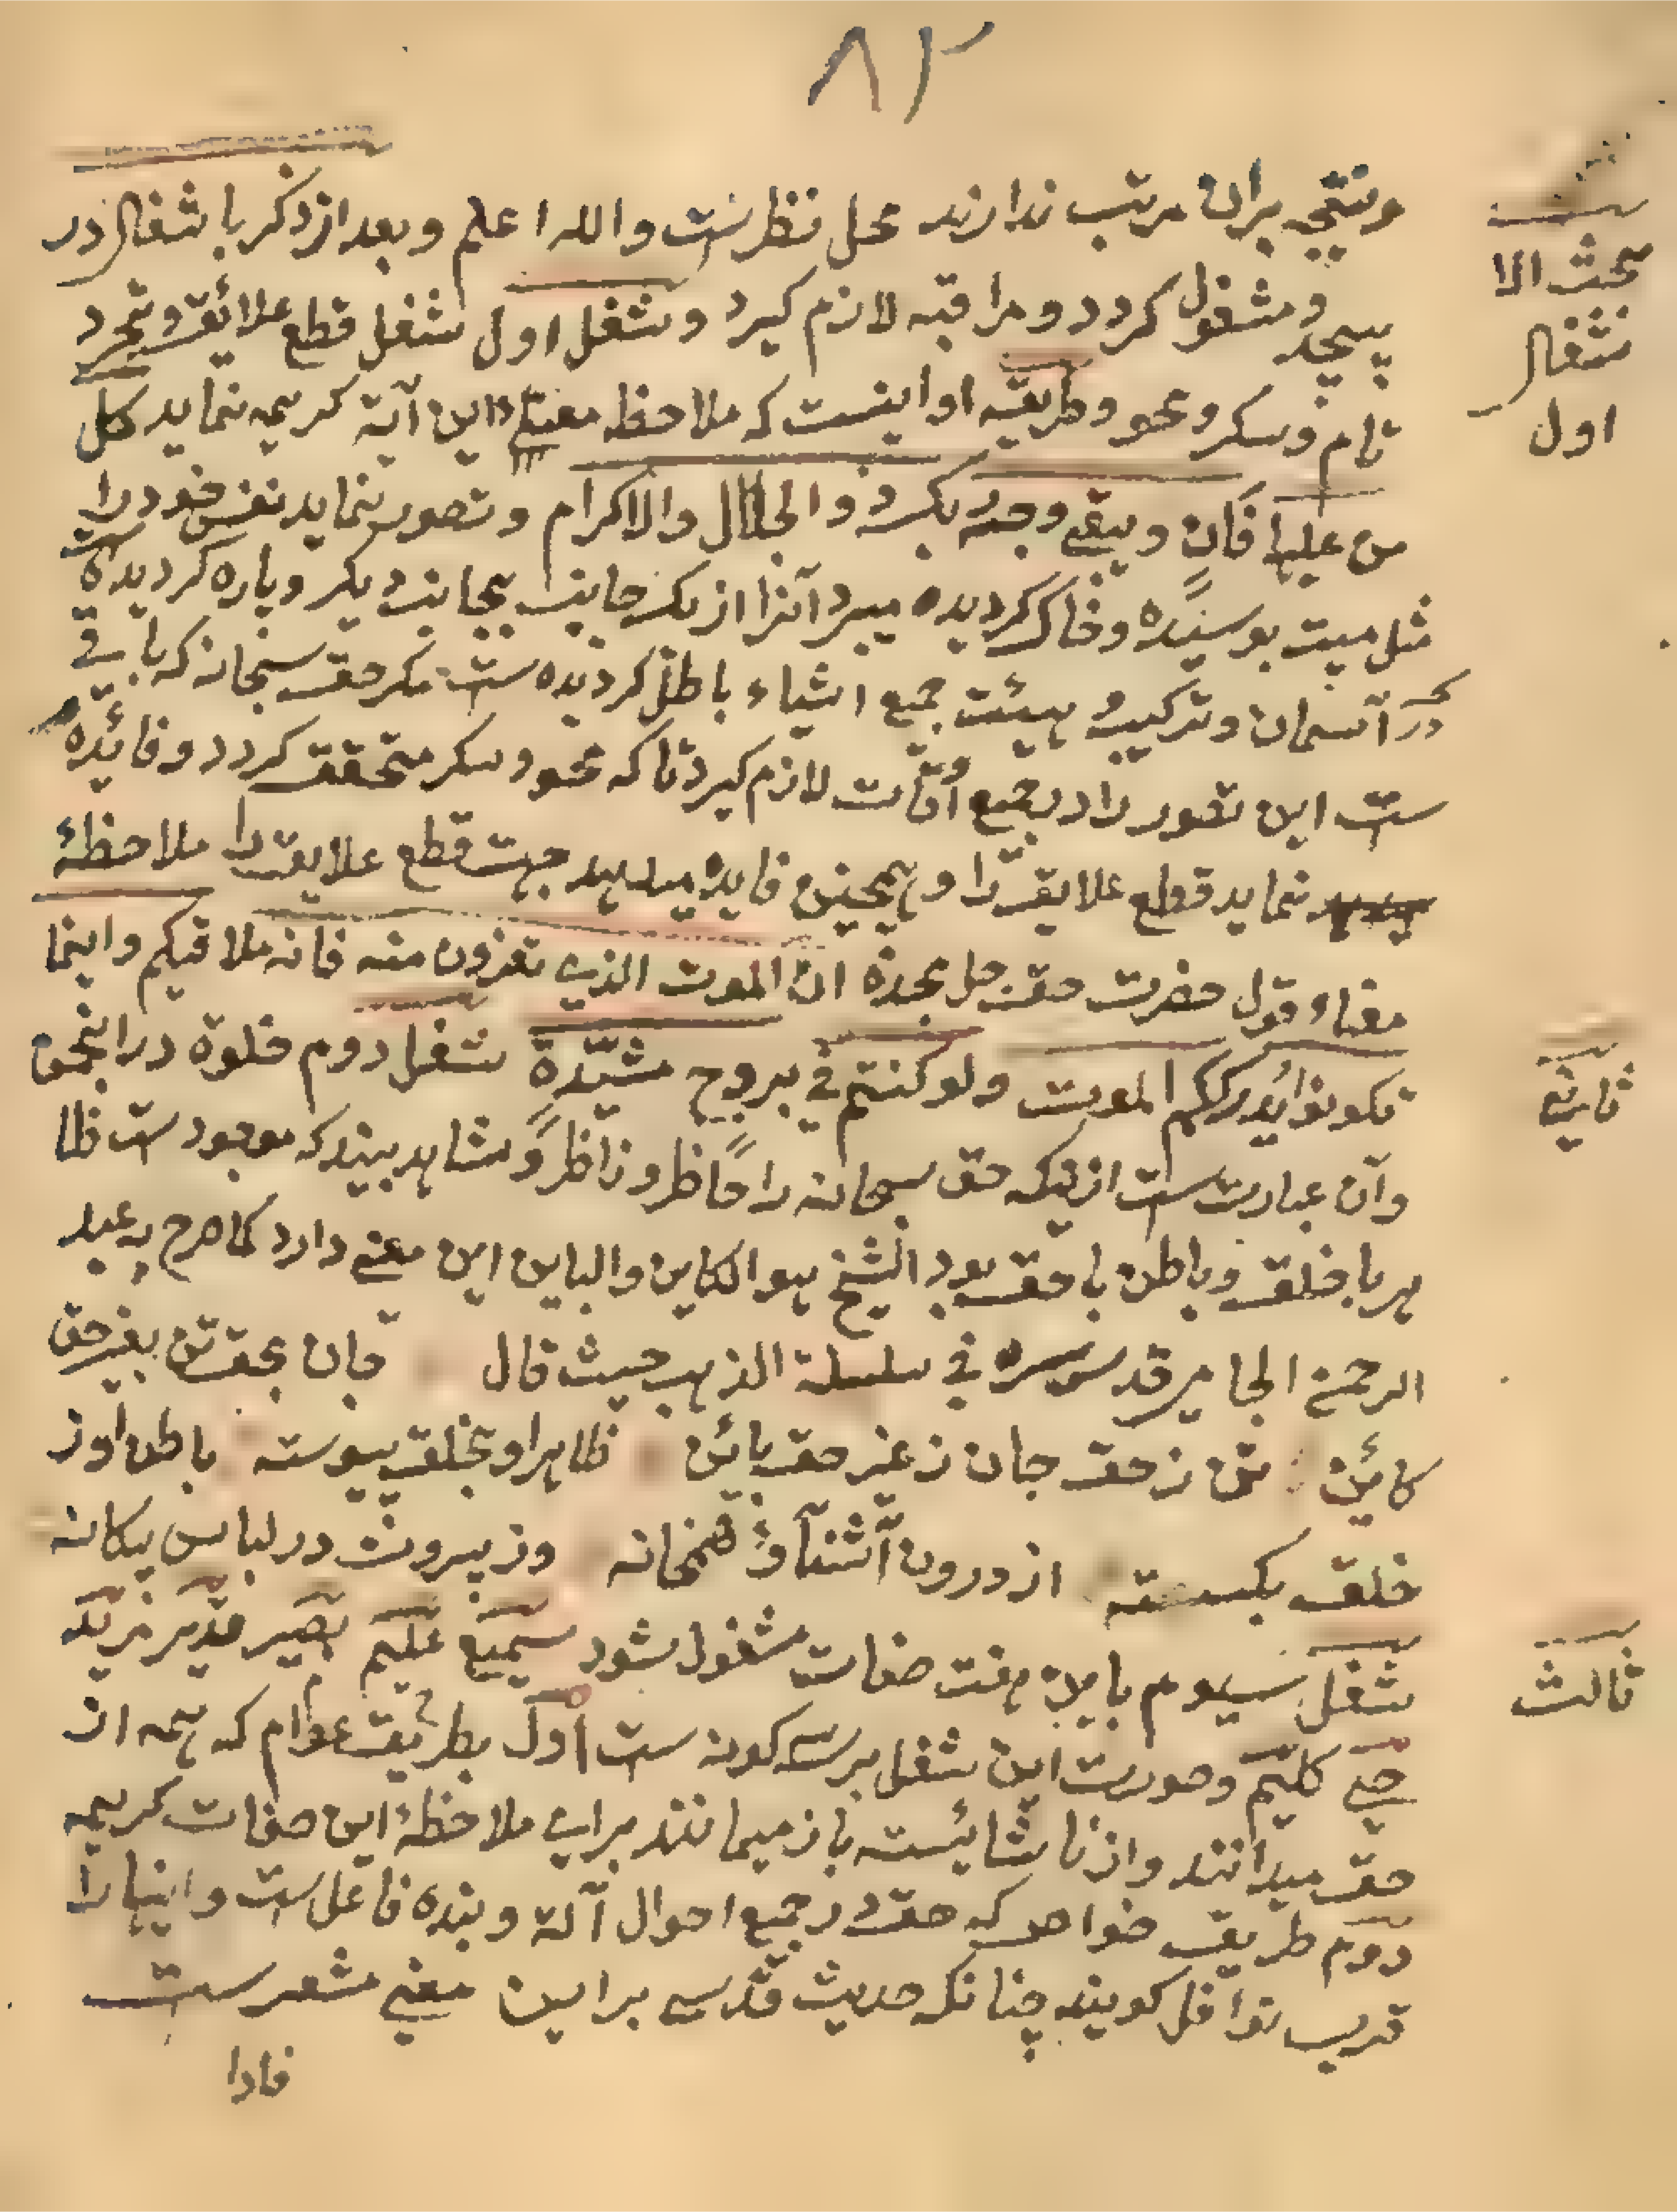 ۸۲
ونتیجه بران مرتب ندارند محل نظرست والله اعلم وبعد از ذکر باشغال در
پیچد و مشغول کردد و مراقبه لازم کیرد وشغل اول شغل قطع علائق وتجرد
تام وسکر ومحو وطریقه او اینست که ملاحظه معنی این آیة کریمه نماید کل
من علیها فان ویبقی وجه ربک ذو الجلال والاکرام وتصور نماید نفس خود را
مثل میت بوسیده وخاک کردیده میبرد آنرا از یک جانب بجانب دیکر وپاره کردیده است
در آسمان وترکیب و هیئت جمیع اشیاء باطل کردیده ست مکر حق سبحانه که باقی
ست این تصور را در جمیع اوقات لازم کیرد تا که محو وسکر متحقق کردد وفائده
نماید قطع علایق را وهمچنین فایده میدهد جهت قطع علایق را ملاحظهٔ
معناء قول حضرت حق جل مجده ان الموت الذی تفرون منه فانه ملاقیکم واینما
تکونوا یدرککم الموت ولو کنتم فی بروج مشیّدة شغل دوم خلوة در انجمن
وآن عبارت ست از نیکه حق سبحانه را حاظر وناظر و مشاهد بیند که موجود ست ظا
هر با خلق وباطن با حق بود الشیخ هو الکاین والباین این معنی دارد کما صرح به عبد
الرحمن الجامی قدس سره فی سلسلة الذهب حیث قال جان بحق تن بغیر حق
کائن تن ز حق جان ز غیر حق بائن ظاهر او بخلق پیوسته باطن او ز
خلق بکسسته از درون آشنا و همخانه وز بیرون در لباس بیکانه
شغل سیوم با هفت صفات مشغول شود سمیع علیم بصیر قدیر مرید
حی کلیم وصورت این شغل بر سه کونه ست اول بطریق عوام که همه از
حق میدانند واز ناشائسته باز میمانند برای ملاحظهٔ این صفات کریمه
دوم طریق خواص که حق در جمیع احوال آلة وبنده فاعل ست واینها را
قرب نوافل کویند چنانکه حدیث قدسی بر این معنی مشعر ست
فاذا
بحث الا
شغال
اول
ثانی
ثالث